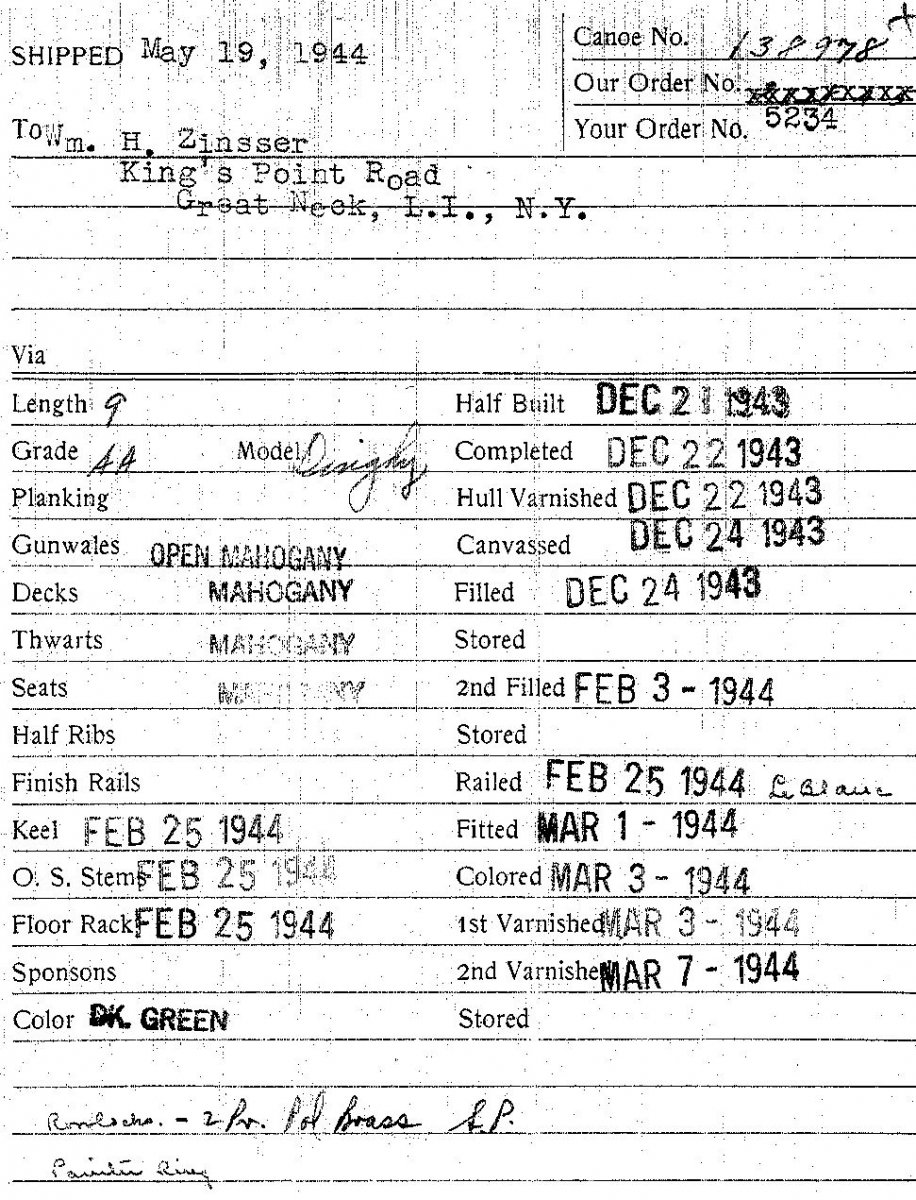 SHIPPED May 19, 1944
Canoe No. 138978
Our Order No. xxxxxxxxx
To Wm. H. Zinsser
Your Order No. 5234
King's Point Road
Great Neck, L.I., N.Y.
Via
Length 9
Half Built DEC 21 1943
Grade AA Model Dinghy
Completed DEC 22 1943
Planking
Hull Varnished DEC 22 1943
Gunwales OPEN MAHOGANY
Canvassed DEC 24 1943
Decks MAHOGANY
Filled DEC 24 1943
Thwarts MAHOGANY
Stored
Seats MAHOGANY
2nd Filled FEB 3 - 1944
Half Ribs
Stored
Finish Rails
Railed FEB 25 1944 LeBlanc
Keel FEB 25 1944
Fitted MAR 1 - 1944
O. S. Stems FEB 25 1944
Colored MAR 3 - 1944
Floor Rack FEB 25 1944
1st Varnished MAR 3 - 1944
Sponsons
2nd Varnished MAR 7 - 1944
Color DK. GREEN
Stored
Rowlocks. - 2 Pr. Pol Brass S.P.
Painter Ring